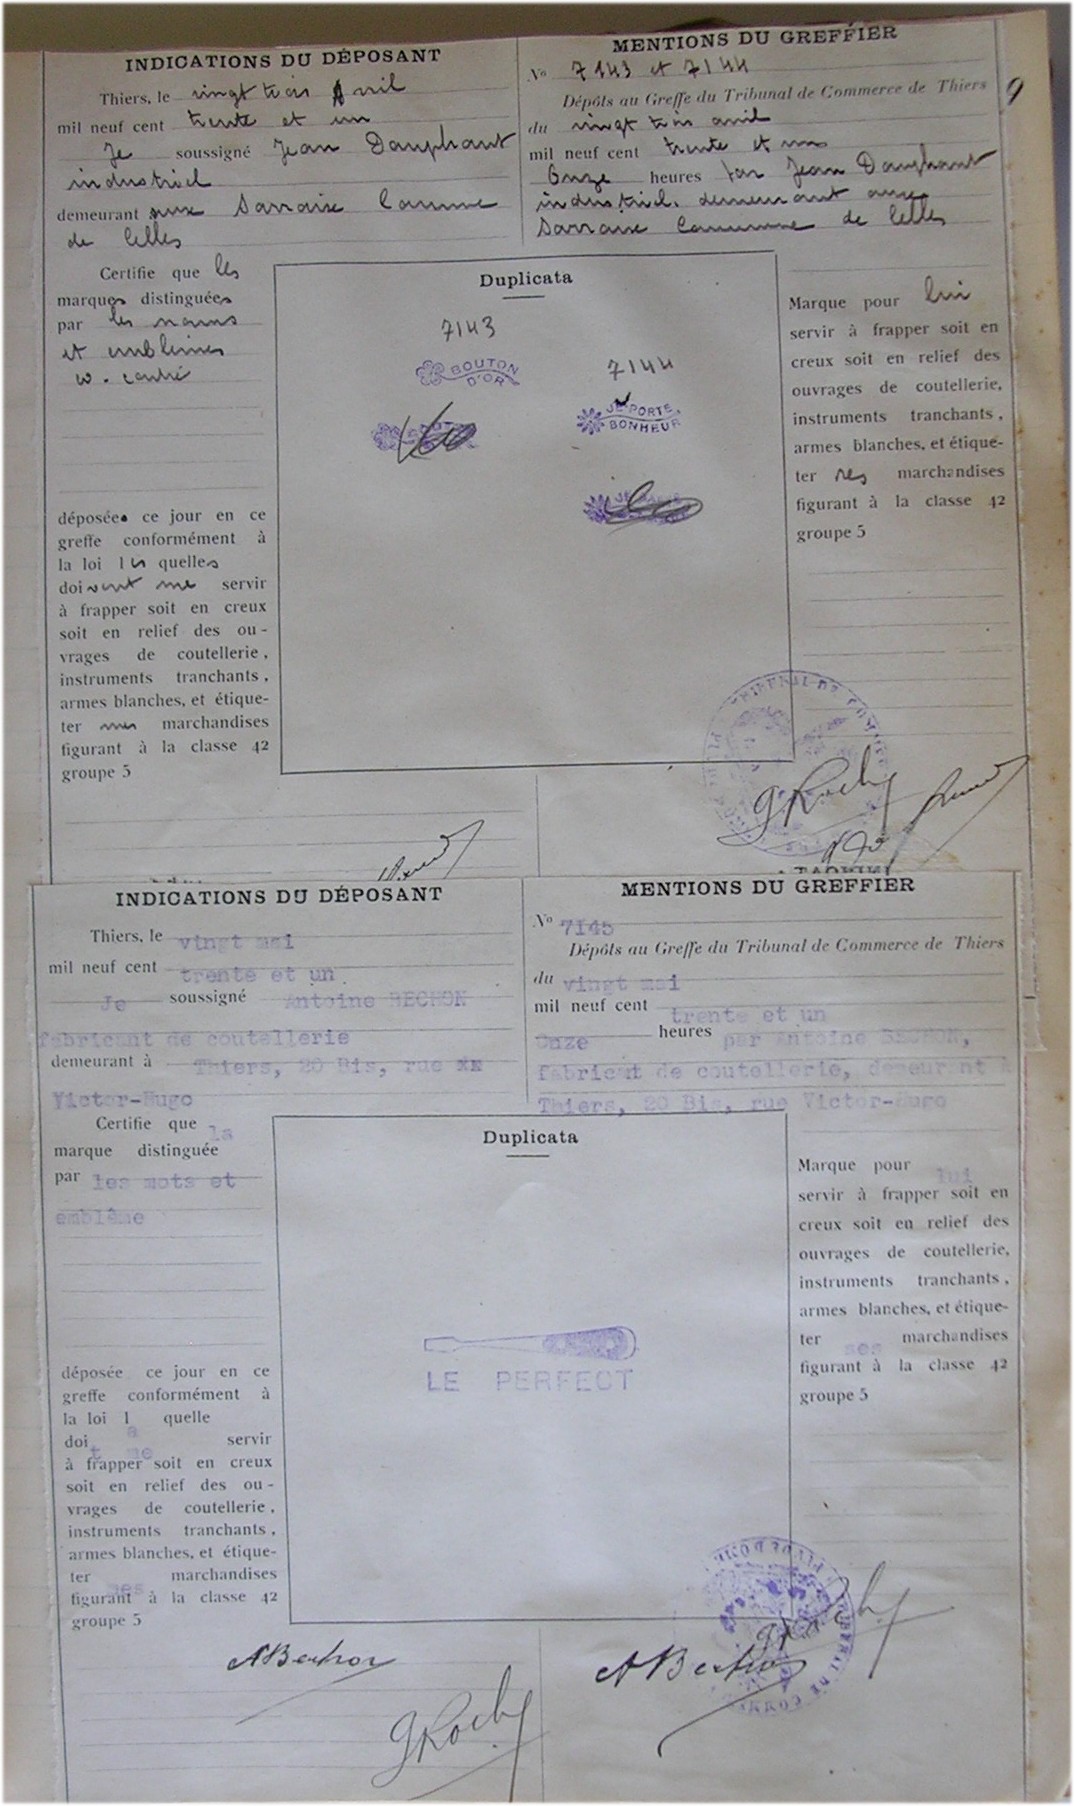 INDICATIONS DU DÉPOSANT
Thiers, le vingt trois Avril
mil neuf cent trente et un
Je soussigné Jean Dauphant
industriel
demeurant aux Sarraix Commune
de Celles
MENTIONS DU GREFFIER
No 7143 et 7144
Dépôts au Greffe du Tribunal de Commerce de Thiers
du vingt trois avril
mil neuf cent trente et un
Onze heures par Jean Dauphant
industriel, demeurant aux
Sarraix Commune de Celles
9
Certifie que les
marques distinguées
par les noms
et emblèmes
ci-contre
déposées ce jour en ce
greffe conformément à
la loi les quelles
doivent me servir
à frapper soit en creux
soit en relief des ou-
vrages de coutellerie,
instruments tranchants,
armes blanches, et étique-
ter mes marchandises
figurant à la classe 42
groupe 5
Duplicata
7143
BOUTON
D'OR
7144
JE PORTE
BONHEUR
Marque pour lui
servir à frapper soit en
creux soit en relief des
ouvrages de coutellerie,
instruments tranchants,
armes blanches, et étique-
ter ses marchandises
figurant à la classe 42
groupe 5
GRoche
INDICATIONS DU DÉPOSANT
Thiers, le vingt mai
mil neuf cent trente et un
Je soussigné Antoine BECHON
fabricant de coutellerie
demeurant à Thiers, 20 Bis, rue
Victor-Hugo
MENTIONS DU GREFFIER
No 7145
Dépôts au Greffe du Tribunal de Commerce de Thiers
du vingt mai
mil neuf cent trente et un
Onze heures par Antoine BECHON,
fabricant de coutellerie, demeurant à
Thiers, 20 Bis, rue Victor-Hugo
Certifie que la
marque distinguée
par les mots et
emblême
déposée ce jour en ce
greffe conformément à
la loi l a quelle
doi t me servir
à frapper soit en creux
soit en relief des ou-
vrages de coutellerie,
instruments tranchants,
armes blanches, et étique-
ter mes marchandises
figurant à la classe 42
groupe 5
Duplicata
LE PERFECT
Marque pour lui
servir à frapper soit en
creux soit en relief des
ouvrages de coutellerie,
instruments tranchants,
armes blanches, et étique-
ter ses marchandises
figurant à la classe 42
groupe 5
ABechon
GRoche
ABechon
GRoche